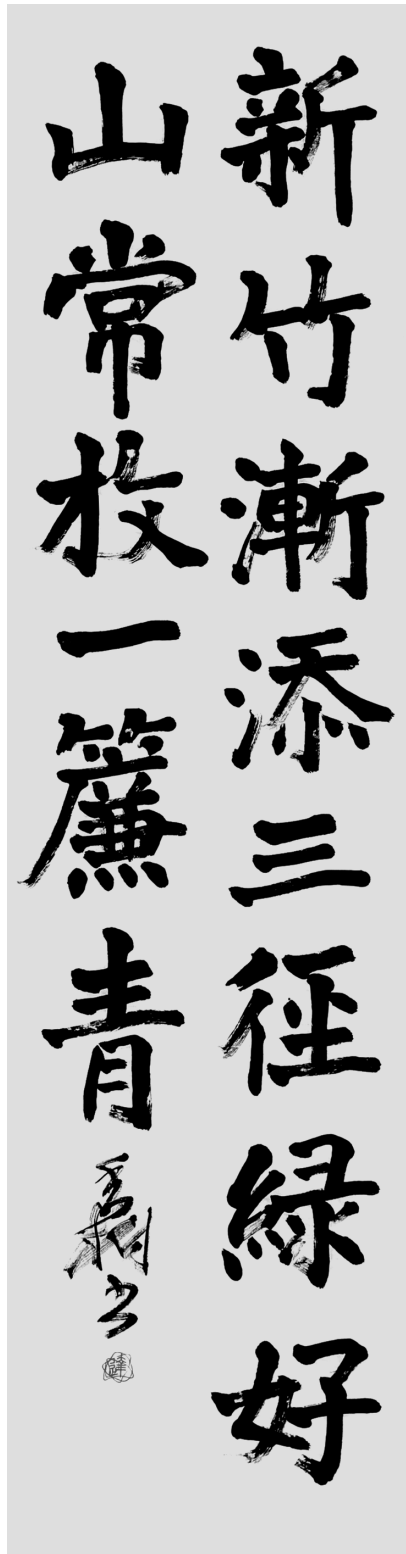 新竹漸添三径緑好
山常放一簾青